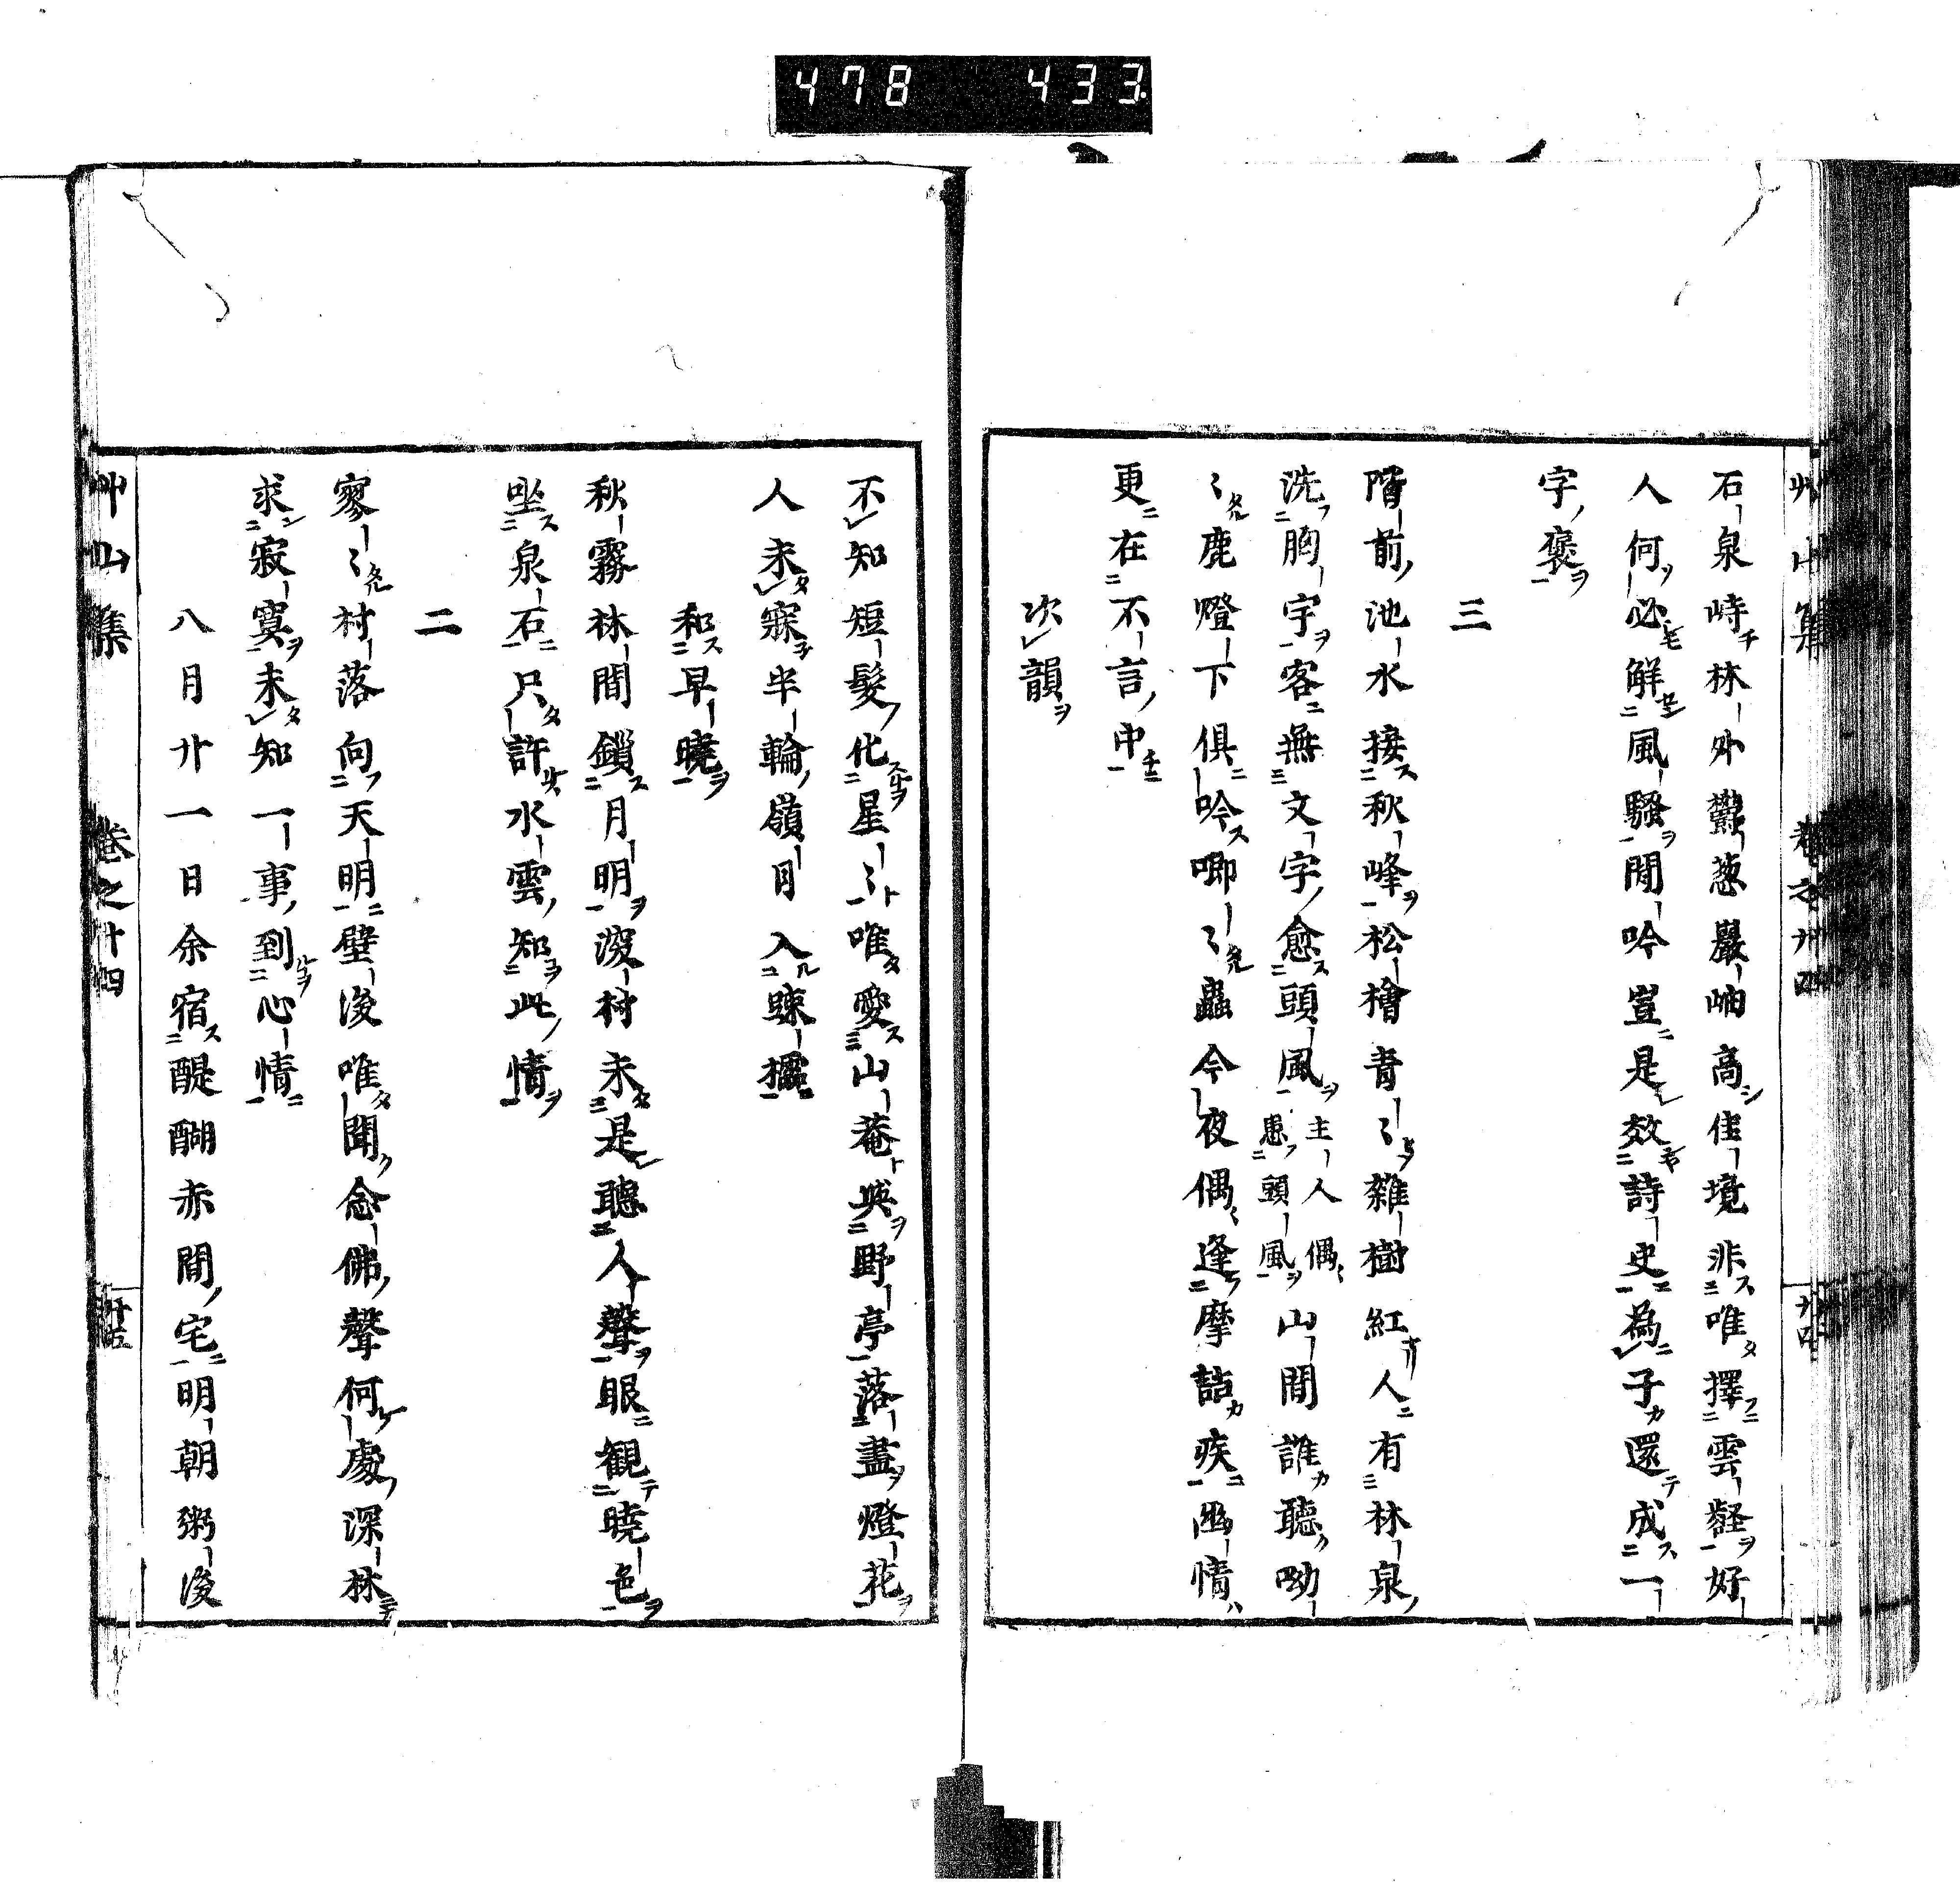 478 433
石泉峙林外欝葱巖岫高佳境非唯擇雲壑好
人何必解風騷閒吟豈是效詩史為子還成一
字褒
三
階前池水接秋峰松檜青〻雜樹紅人有林泉
洗胸宇客無文字愈頭風主人偶患頭風山閒誰聽呦
〻鹿燈下俱吟唧〻蟲今夜偶逢摩詰疾幽情
更在不言中
次韻
不知短髮化星〻唯愛山菴與野亭落盡燈花
人未寐半輪嶺月入疎櫺
和早曉
秋霧林間鎖月明深村未是聽人聲眼観曉色
坐泉石只許水雲知此情
二
寥〻村落向天明壁後唯聞念佛聲何處深林
求寂寞未知一事到心情
八月廿一日余宿醍醐赤間宅明朝粥後
艸山集 巻之廿四 廿五